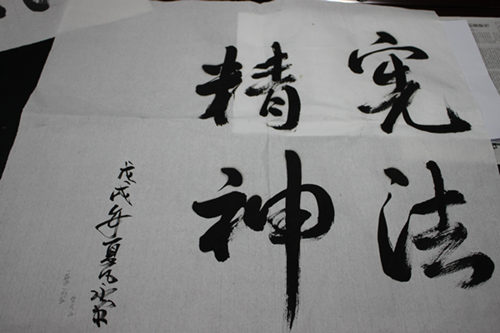 宪法
精神
戊戌年夏